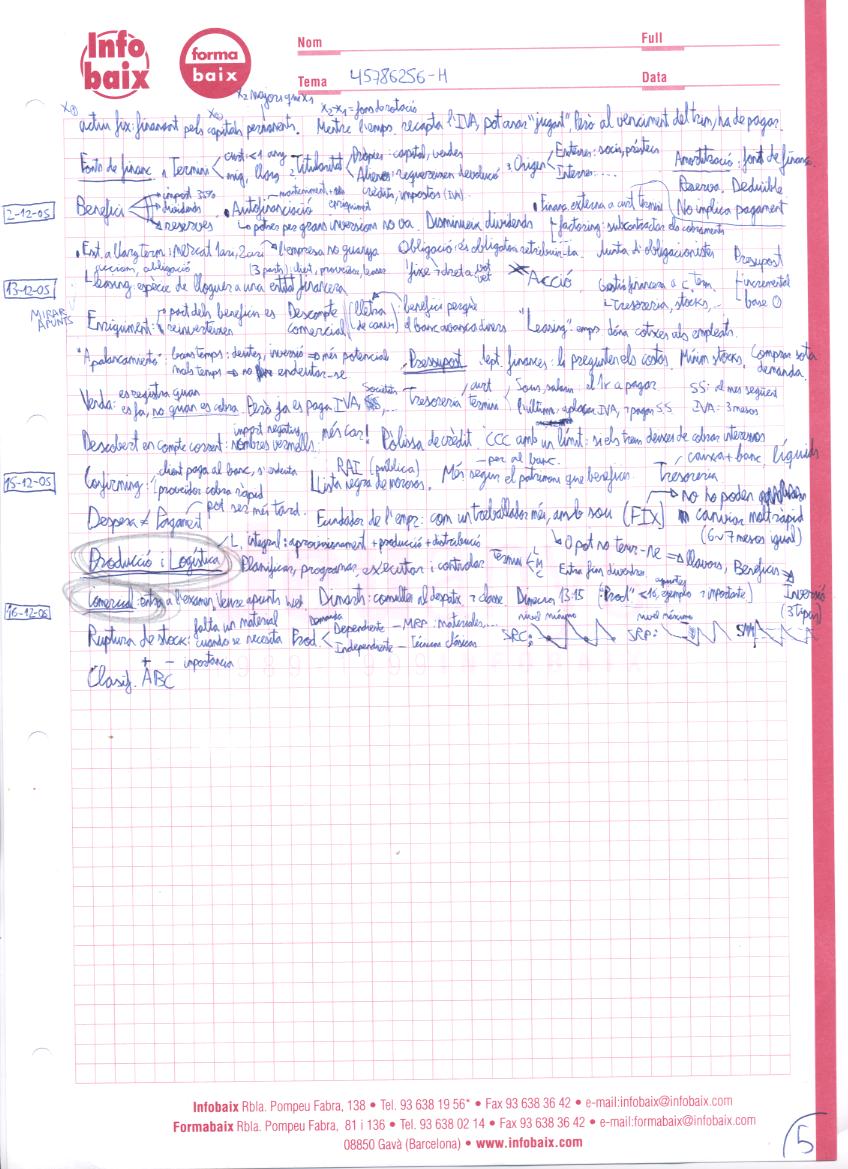 Info baix
forma baix
Nom
Full
Tema 45786256-H
Data
X2 major que X1
X2-X1 = fons de rotació
actiu fix: finançat pels capitals permanents. Mentre l'emps. recapta l'IVA, pot anar "jugant", Però al venciment del trim, ha de pagar.
Fonts de financ. 1 Termini curt <1 any 2 Titularitat Pròpies: capital, vendes 3 Origen Externes: socis, préstecs Amortització: font de financ.
mig, llarg Alienes: requereixen devolució Internes:.... Reserva. Deducible
2-12-05
Benefici impost 35% Autofinanciació manteniment crèdits, impostos (IVA) Financ. externa a curt termini No implica pagament
dividends enriquiment
reserves Lo potser per grans inversions no va. Disminueix dividends factoring: subcontractar els cobraments
Est. a llarg term: Mercat 1ari, 2ari l'empresa no guanya Obligació: és obligatori retribuir-la. Junta d'obligacionistes Presupost
13-12-05
Leasing: espècie de lloguer a una entitat financera (3 parts): client, proveïdor, leaser fixe dret a vot Acció Gestió financera a c. term. incremental
tresoreria, stocks,... base 0
MIRAR APUNTS
Enriquiment: part dels beneficis es reinverteixen Descompte comercial (lletra de canvi) benefici perquè el banc avança diners "Leasing" emps dóna cotxes als empleats.
"Apalancamiento": bons temps: deutes, inversió => més potencial Pressupost dept. finances: li pregunten els costos. Mínim stocks. Comprar sota demanda.
mals temps => no endeutar-se
Venda: es registra quan es fa, no quan es cobra. Però ja es paga IVA, Societats,... Tresoreria termini curt Sous, salaris el 1r a pagar SS: al mes següent
l'últim: aplaçar IVA, pagar SS IVA: 3 mesos
Descobert en compte corrent: import negatiu, nombres vermells més car! Pòlissa de crèdit CCC amb un límit: si els trens deixes de cobrar interessos
15-12-05
Confirming: client paga al banc, proveïdor cobra ràpid RAI (pública) Llista negra de morosos. Més segur el patrimoni que beneficis Tresoreria caixa + banc, líquids
per al banc.
Despesa ≠ Pagament pot ser més tard. Fundador de l'empr: com un treballador més, amb sou (FIX) no ho poden canviar molt ràpid
(6~7 mesos igual)
Producció i Logística L. integral: aprovisionament + producció + distribució 0 pot no tenir-ne => llavors, Beneficis
Planificar, programar, executar i controlar Termini L M C
Comercial: entra a l'examen. Veure apunts web. Dimarts: consultar al despatx, classe Dimecres 13-15 "Prod" <16, exemple importante) Inversió (3 tipus)
16-12-05
Ruptura de stock: falta un material cuando se necesita Prod Demanda Dependiente - MRP: materiales... nivel mínimo SRC: nivel máximo SRP:
Independiente - Técnicas clásicas
Clasif. ABC + - importancia
Infobaix Rbla. Pompeu Fabra, 138 • Tel. 93 638 19 56* • Fax 93 638 36 42 • e-mail:infobaix@infobaix.com
Formabaix Rbla. Pompeu Fabra, 81 i 136 • Tel. 93 638 02 14 • Fax 93 638 36 42 • e-mail:formabaix@infobaix.com
08850 Gavà (Barcelona) • www.infobaix.com
5